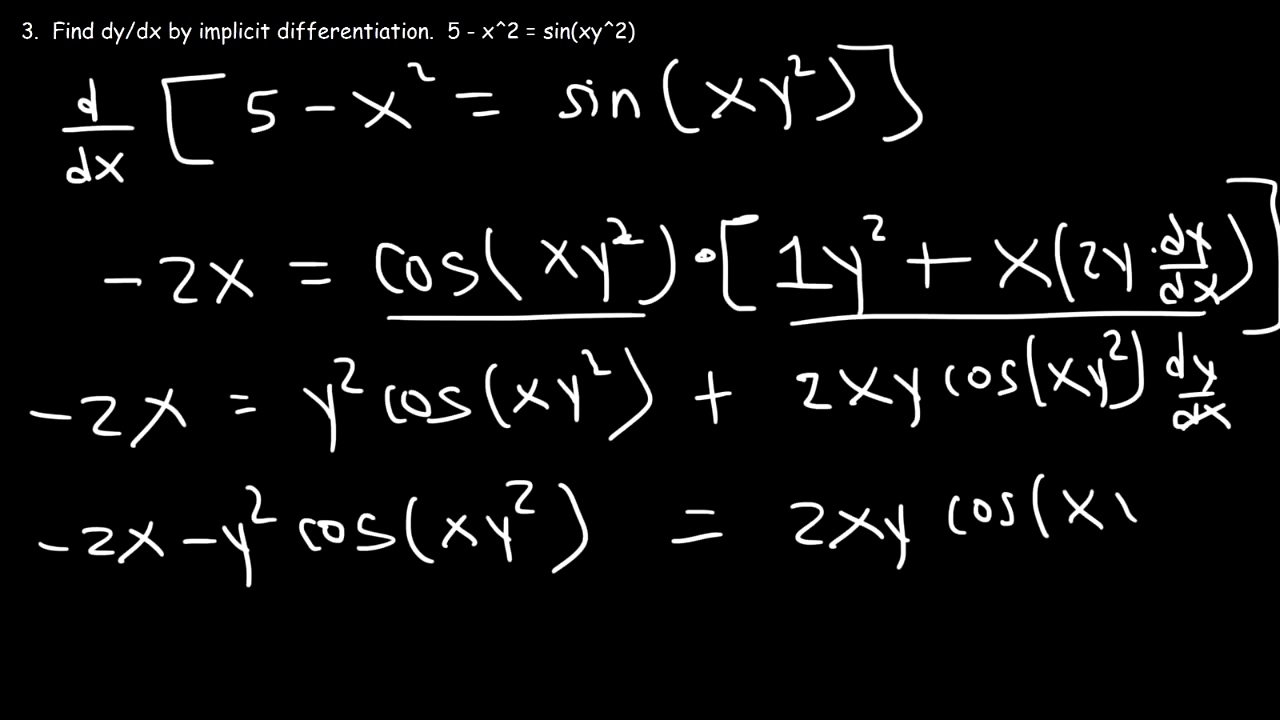 3. Find dy/dx by implicit differentiation. 5 - x^2 = sin(xy^2)
d/dx [5 - x² = sin(xy²)]
-2x = cos(xy²) · [1y² + x(2y · dx/dx)]
-2x = y² cos(xy²) + 2xy cos(xy²) dy/dx
-2x - y² cos(xy²) = 2xy cos(x